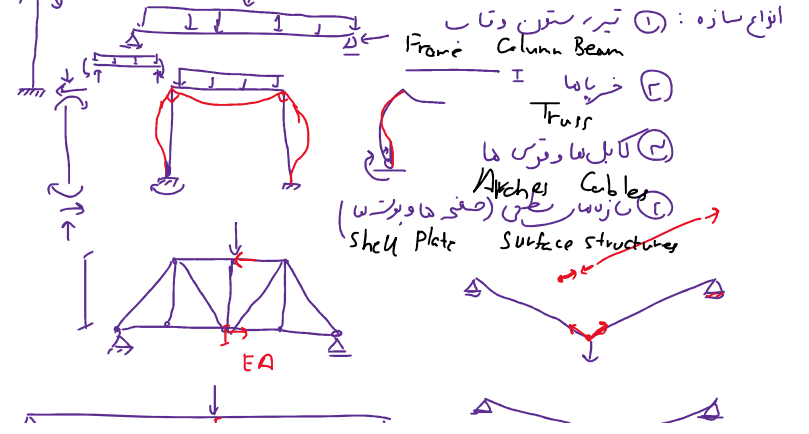 انواع سازه : ① تیر، ستون و قاب
Frame Column Beam
I
② خرپاها
Truss
③ کابل‌ها و قوس‌ها
Arches Cables
④ سازه‌های سطحی (صفحه‌ها و پوسته‌ها)
Shell Plate Surface structures
EA